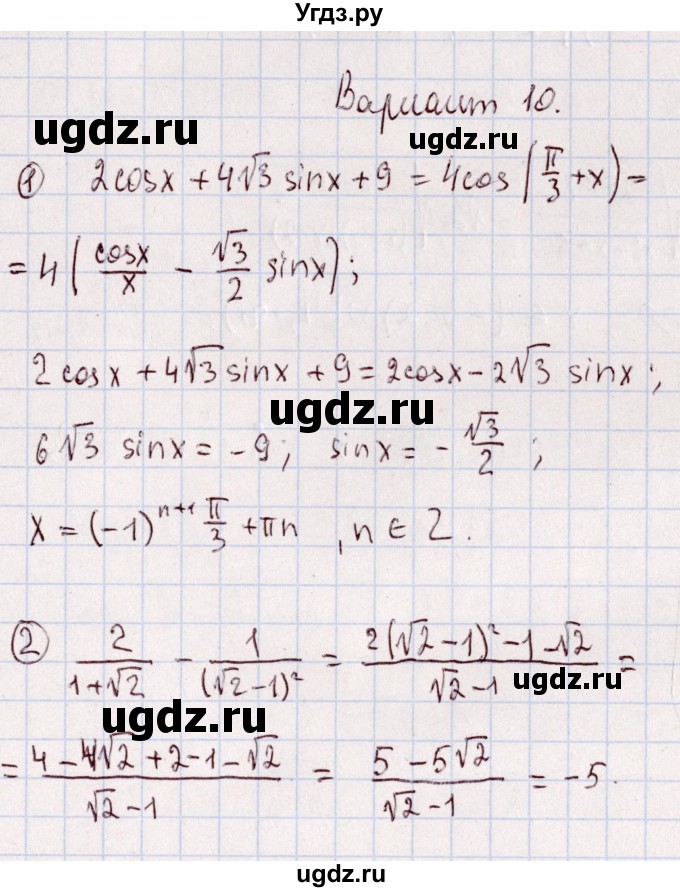 Угдз.ру
Вариант 10.
ugdz.ru ugdz.ru
① 2cosx + 4√3 sinx + 9 = 4cos(π/3 + x) =
= 4(cosx/x - √3/2 sinx);
2cosx + 4√3 sinx + 9 = 2cosx - 2√3 sinx;
ugdz.ru
6√3 sinx = -9; sinx = -√3/2;
x = (-1)^(n+1) π/3 + πn, n ∈ Z.
② 2/(1+√2) - 1/(√2-1)² = (2(√2-1)² - 1 - √2)/(√2-1) =
ugdz.ru
ugdz.ru
= (4 - 4√2 + 2 - 1 - √2)/(√2-1) = (5 - 5√2)/(√2-1) = -5.
ugdz.ru